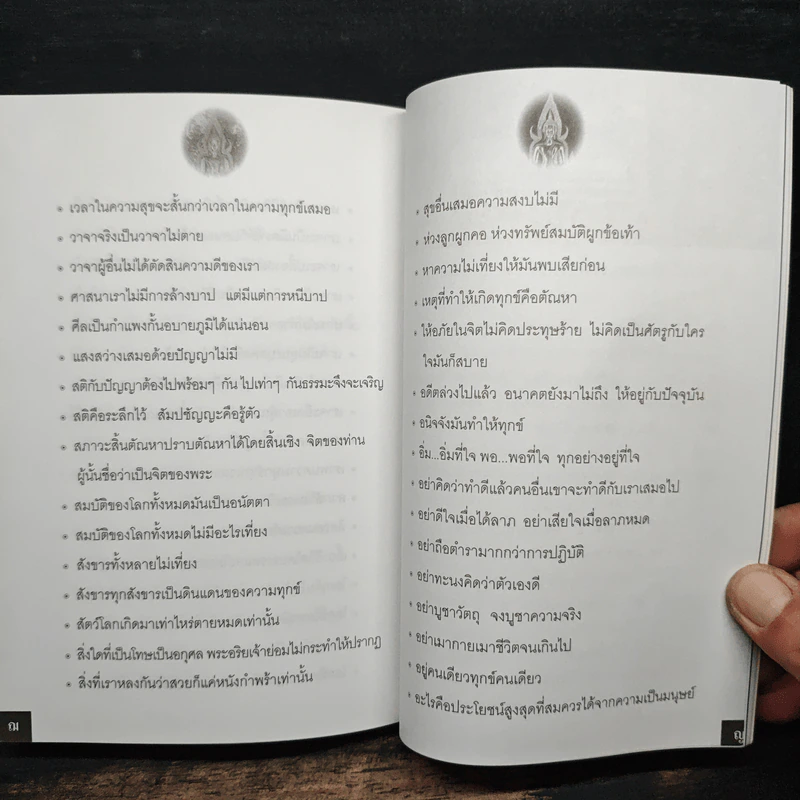 * เวลาในความสุขจะสั้นกว่าเวลาในความทุกข์เสมอ
* วาจาจริงเป็นวาจาไม่ตาย
* วาจาผู้อื่นไม่ได้ตัดสินความดีของเรา
* ศาสนาเราไม่มีการล้างบาป แต่มีแต่การหนีบาป
* ศีลเป็นกำแพงกั้นอบายภูมิได้แน่นอน
* แสงสว่างเสมอด้วยปัญญาไม่มี
* สติกับปัญญาต้องไปพร้อมๆ กัน ไปเท่าๆ กันธรรมะจึงจะเจริญ
* สติคือระลึกไว้ สัมปชัญญะคือรู้ตัว
* สภาวะสิ้นตัณหาปราบตัณหาได้โดยสิ้นเชิง จิตของท่าน
ผู้นั้นชื่อว่าเป็นจิตของพระ
* สมบัติของโลกทั้งหมดมันเป็นอนัตตา
* สมบัติของโลกทั้งหมดไม่มีอะไรเที่ยง
* สังขารทั้งหลายไม่เที่ยง
* สังขารทุกสังขารเป็นดินแดนของความทุกข์
* สัตว์โลกเกิดมาเท่าไหร่ตายหมดเท่านั้น
* สิ่งใดที่เป็นโทษเป็นอกุศล พระอริยเจ้าย่อมไม่กระทำให้ปรากฏ
* สิ่งที่เราหลงกันว่าสวยก็แค่หนังกำพร้าเท่านั้น
ฌ
* สุขอื่นเสมอความสงบไม่มี
* ห่วงลูกผูกคอ ห่วงทรัพย์สมบัติผูกข้อเท้า
* หาความไม่เที่ยงให้มันพบเสียก่อน
* เหตุที่ทำให้เกิดทุกข์คือตัณหา
* ให้อภัยในจิตไม่คิดประทุษร้าย ไม่คิดเป็นศัตรูกับใคร
ใจมันก็สบาย
* อดีตล่วงไปแล้ว อนาคตยังมาไม่ถึง ให้อยู่กับปัจจุบัน
* อนิจจังมันทำให้ทุกข์
* อิ่ม...อิ่มที่ใจ พอ...พอที่ใจ ทุกอย่างอยู่ที่ใจ
* อย่าคิดว่าทำดีแล้วคนอื่นเขาจะทำดีกับเราเสมอไป
* อย่าดีใจเมื่อได้ลาภ อย่าเสียใจเมื่อลาภหมด
* อย่าถือตำรามากกว่าการปฏิบัติ
* อย่าทะนงคิดว่าตัวเองดี
* อย่าบูชาวัตถุ จงบูชาความจริง
* อย่าเมากายเมาชีวิตจนเกินไป
* อยู่คนเดียวทุกข์คนเดียว
* อะไรคือประโยชน์สูงสุดที่สมควรได้จากความเป็นมนุษย์
ญ